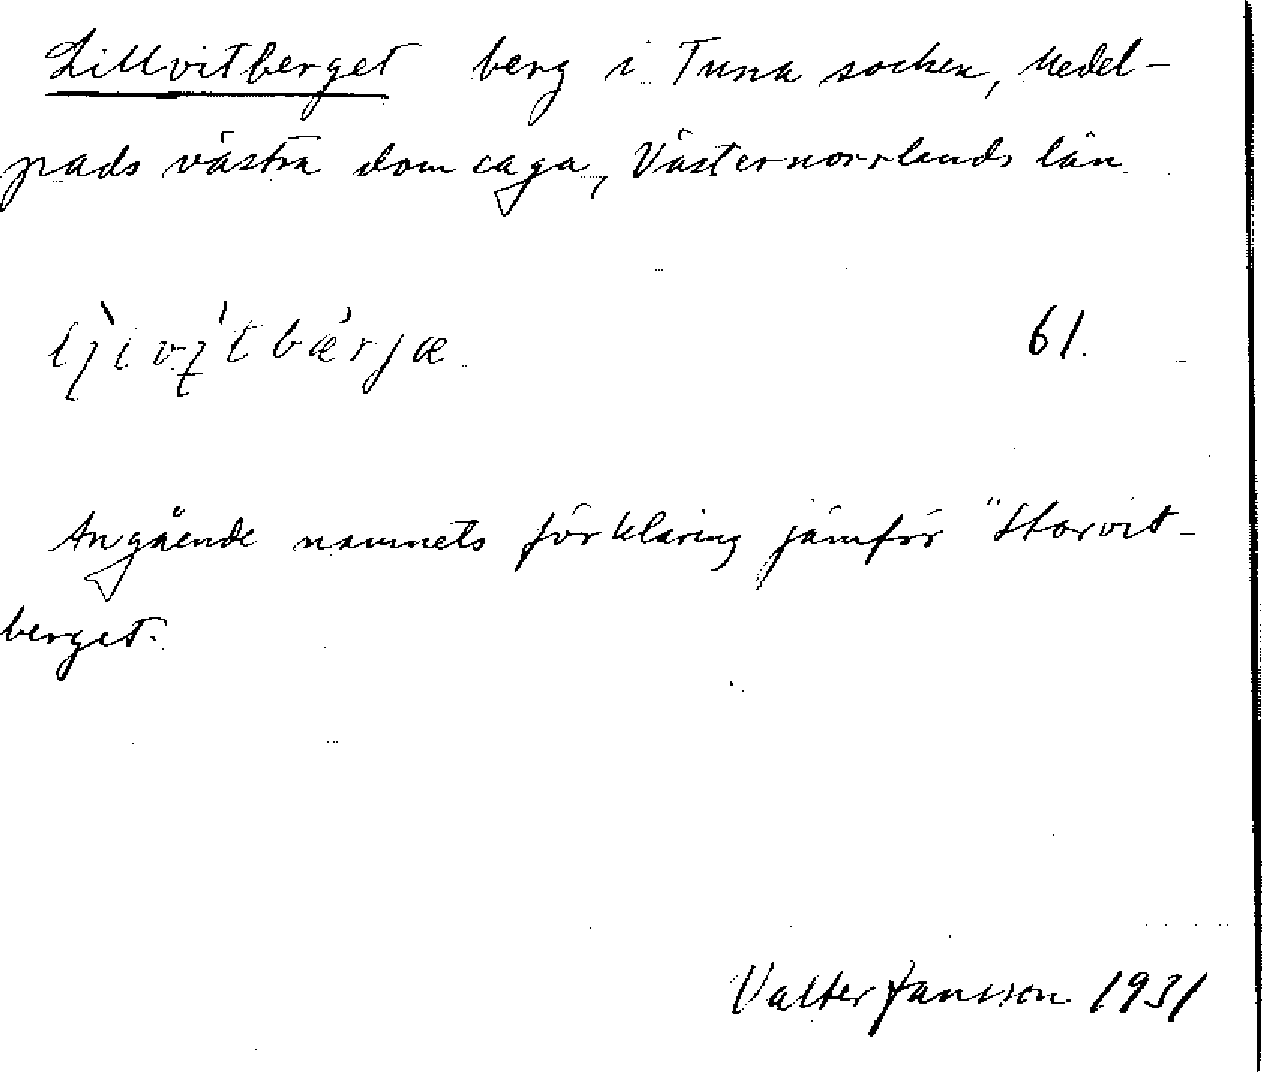 Lillvitberget berg i Tuna socken, Medel-
pads västra domsaga, Västernorrlands län
61.
Angående namnets förklaring jämför "Storvit-
berget.
Valter Jansson 1931